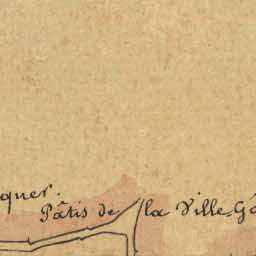 quer.
Pâtis de la Ville-Gá